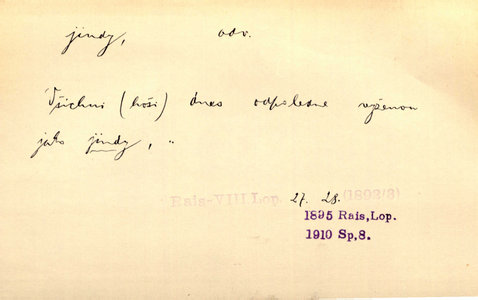 jindy, adv.
Všichni (hoši) dnes odpoledne vyženou
jako jindy, „
Rais-VIII, Lop. 27. 28. (1892/3)
1895 Rais, Lop.
1910 Sp, 8.